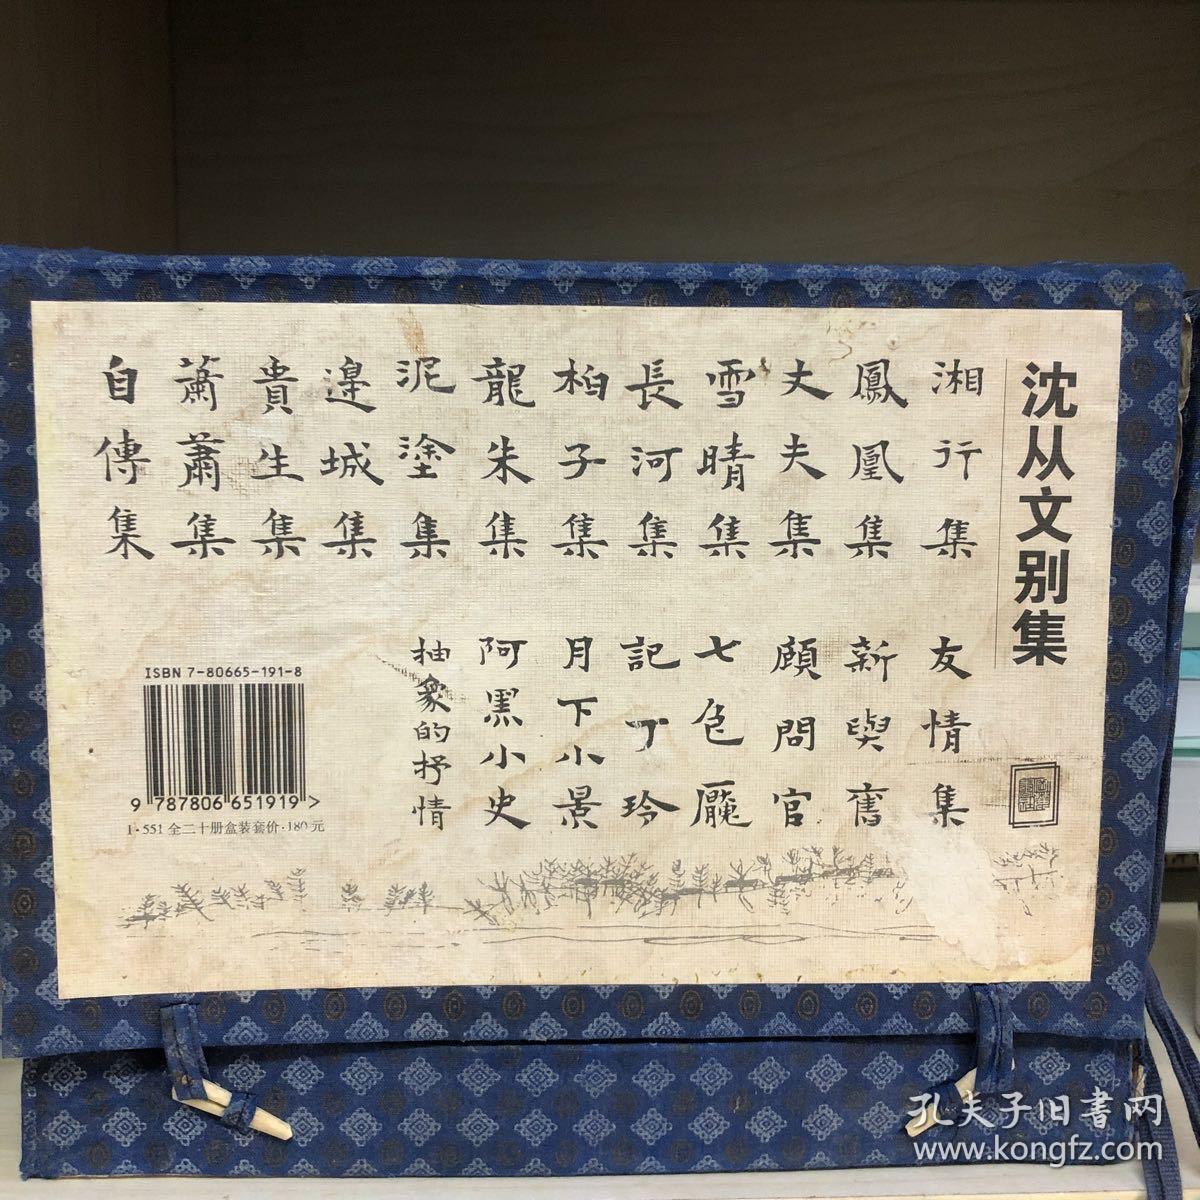 沈从文别集
湘行集
鳳凰集
丈夫集
雪晴集
長河集
柏子集
龍朱集
泥塗集
邊城集
貴生集
蕭蕭集
自傳集
友情集
新與舊
顧問官
七色魘
記丁玲
月下小景
阿黑小史
抽象的抒情
ISBN 7-80665-191-8
9 787806 651919 >
I·551 全二十册盒装套价·180元
孔夫子旧書网
www.kongfz.com